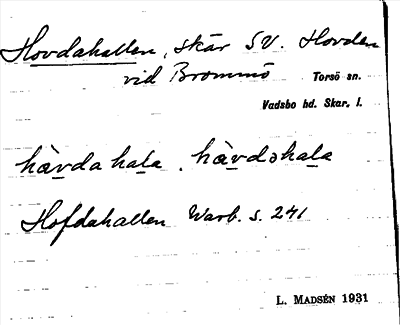 Hovdahallen, skär SV. Hovden
vid Brommö Torsö sn.
Vadsbo hd. Skar. l.
hàvdahala, hàvdəhala
Hofdahallen Warb. s. 241
L. MADSÉN 1931